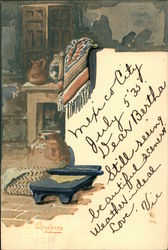 Mexico City
July 5'35
Dear Bertha
Still seeing
beautiful scenery.
Weather ideal
Love. Vic